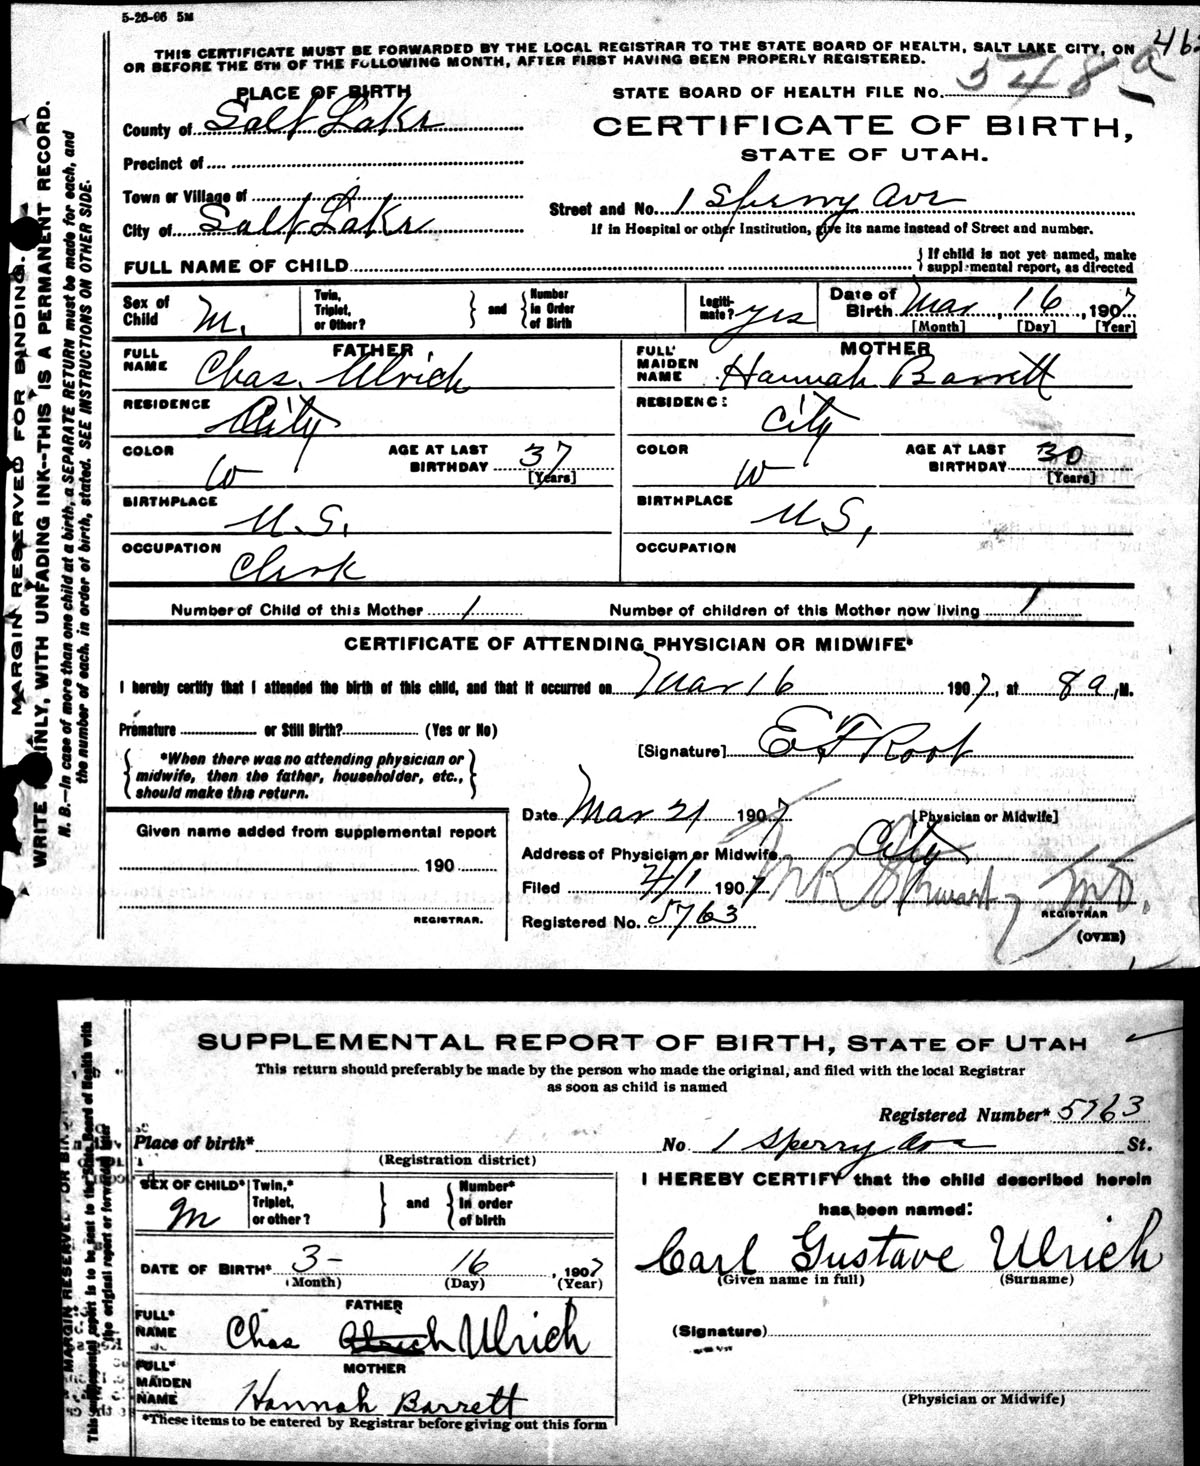 5-26-06 5M
THIS CERTIFICATE MUST BE FORWARDED BY THE LOCAL REGISTRAR TO THE STATE BOARD OF HEALTH, SALT LAKE CITY, ON
OR BEFORE THE 5TH OF THE FOLLOWING MONTH, AFTER FIRST HAVING BEEN PROPERLY REGISTERED.
PLACE OF BIRTH
STATE BOARD OF HEALTH FILE No. 548 a
County of Salt Lake
CERTIFICATE OF BIRTH,
STATE OF UTAH.
Precinct of
Town or Village of
Street and No. 1 Sperry Ave
City of Salt Lake
If in Hospital or other Institution, give its name instead of Street and number.
FULL NAME OF CHILD
{ If child is not yet named, make
supplemental report, as directed
Sex of Child M.
Twin, Triplet, or Other? } and { Number in Order of Birth
Legitimate? yes
Date of Birth Mar, 16, 1907
[Month] [Day] [Year]
FATHER
FULL NAME Chas. Ulrich
MOTHER
FULL MAIDEN NAME Hannah Barrett
RESIDENCE City
RESIDENCE City
COLOR W
AGE AT LAST BIRTHDAY 37 [Years]
COLOR W
AGE AT LAST BIRTHDAY 30 [Years]
BIRTHPLACE U.S.
BIRTHPLACE U.S.
OCCUPATION Clerk
OCCUPATION
Number of Child of this Mother 1
Number of children of this Mother now living 1
CERTIFICATE OF ATTENDING PHYSICIAN OR MIDWIFE*
I hereby certify that I attended the birth of this child, and that it occurred on Mar 16 1907, at 8 a, M.
Premature or Still Birth? (Yes or No)
[Signature] E F Root
{ *When there was no attending physician or
midwife, then the father, householder, etc.,
should make this return. }
Date Mar 21 1907
[Physician or Midwife]
Given name added from supplemental report
Address of Physician or Midwife City
190
Filed 4/1 1907
REGISTRAR.
Registered No. 5763
REGISTRAR
(OVER)
MARGIN RESERVED FOR BINDING.
WRITE PLAINLY, WITH UNFADING INK--THIS IS A PERMANENT RECORD.
N. B.--In case of more than one child at a birth, a SEPARATE RETURN must be made for each, and
the number of each, in order of birth, stated. SEE INSTRUCTIONS ON OTHER SIDE.
SUPPLEMENTAL REPORT OF BIRTH, STATE OF UTAH
This return should preferably be made by the person who made the original, and filed with the local Registrar
as soon as child is named
Registered Number* 5763
Place of birth* No 1 Sperry Ave St.
(Registration district)
SEX OF CHILD* M
Twin,* Triplet, or other? } and { Number* in order of birth
I HEREBY CERTIFY that the child described herein
has been named:
DATE OF BIRTH* 3- 16, 1907
(Month) (Day) (Year)
Carl Gustave Ulrich
(Given name in full) (Surname)
FATHER
FULL* NAME Chas Ulrich Ulrich
(Signature)
MOTHER
FULL* MAIDEN NAME Hannah Barrett
(Physician or Midwife)
*These items to be entered by Registrar before giving out this form